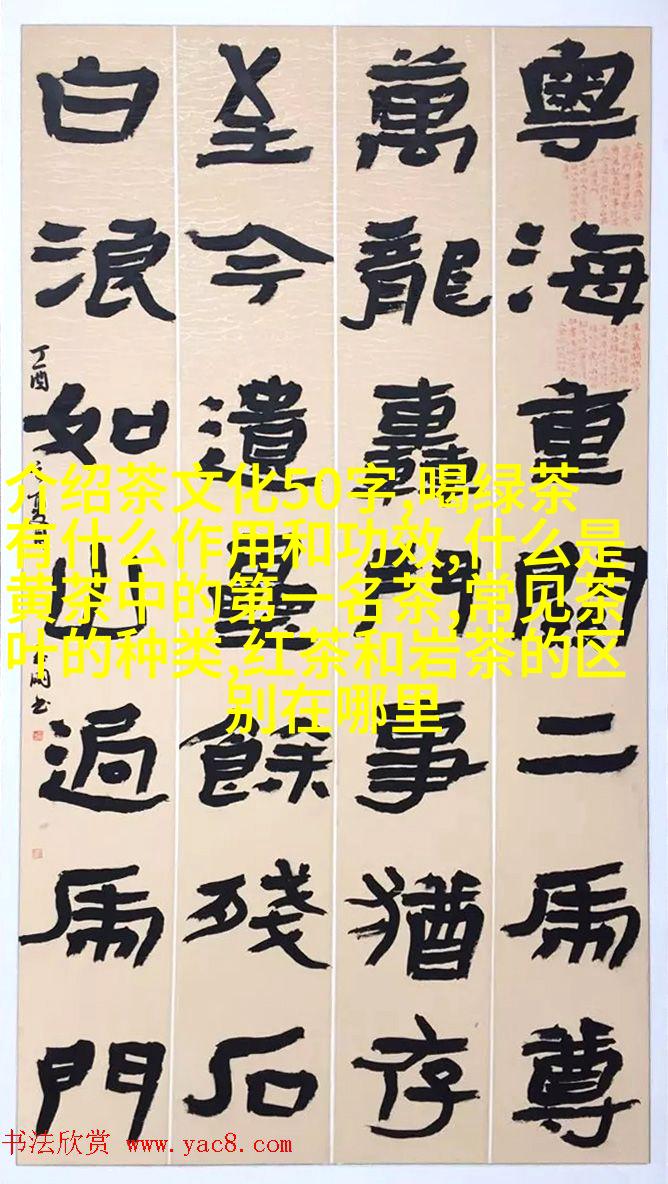 粵海重關二虎尊
萬龍轟鬥事猶存
至今遺壘餘殘石
白浪如山過虎門
丁酉
夏
书
介绍茶文化50字,喝绿茶
有什么作用和功效,什么是
黄茶中的第一名茶,常见茶
叶的种类,红茶和岩茶的区
别在哪里
书法欣赏 www.yac8.com